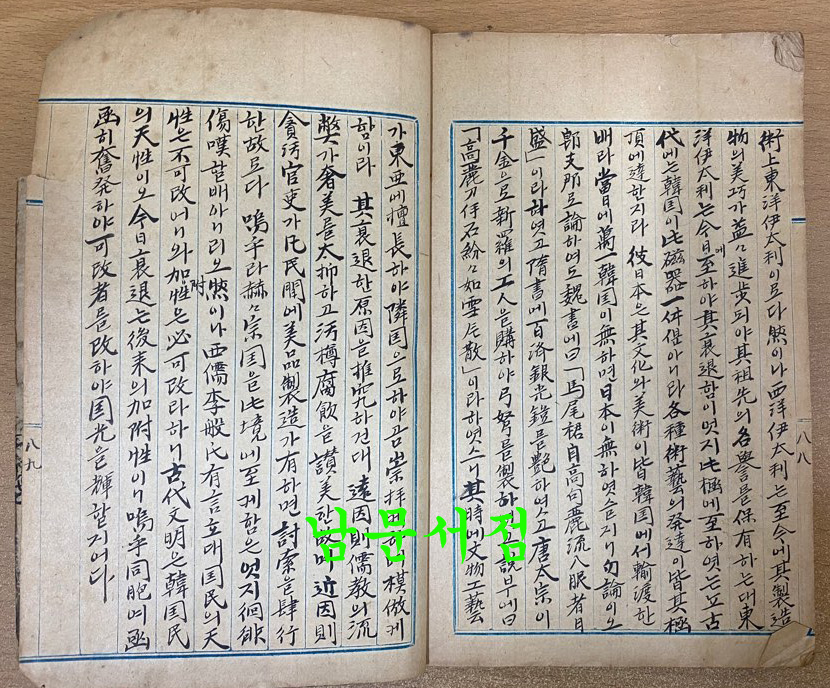 術上東洋伊太利이로다 然이나 西洋伊太利는 至今에 其製造
物의 美巧가 益々進步되야 其祖先의 名譽를 保有하는대 東
洋伊太利는 今日에至하야 其衰退함이 엇지 此極에 至하엿는고 古
代에는 韓国이 此磁器一件아니라 各種術藝의 発達이 皆其極
頂에 達한지라 彼日本은 其文化와 美術이 皆韓国에서 輸渡한
배라 當日에 萬一韓国이 無하면 日本이 無하엿슬 勿論이오
支那로 論하여도 魏書에曰「馬尾裙自高句麗流入服者日
盛」이라하엿고 隋書에 百済銀光鎧를 艶하엿고 唐太宗이
千金으로 新羅의 工人을 購하야 弓弩를 製하 說部에曰
「高麗刀伐石紛々如雪片散」이라하엿스니 其時에 文物工藝
八八
가 東亜에 擅長하야 隣国으로하야곰 崇拜 模倣케
함이라 其衰退한 原因을 推究하건대 遠因則儒教의 流
弊가 奢美를 太抑하고 汚樽腐飲을 讃美한 近因則
貪汚官吏가 凡民間에 美品製造가 有하면 討索을 肆行
한故로다 嗚乎라 赫々宗国을 此境에 至케함은 엇지 徊徘
傷嘆할배아니리오 然이나 西儒李般氏有言호대 国民의 天
性은 不可改어니와 附加性은 必可改라하니 古代文明은 韓国民
의 天性이오 今日衰退는 後来의 加附性이니 嗚乎同胞여 亟
亟히 奮発하야 可改者를 改하야 国光을 輝할지어다
八九
남문서점